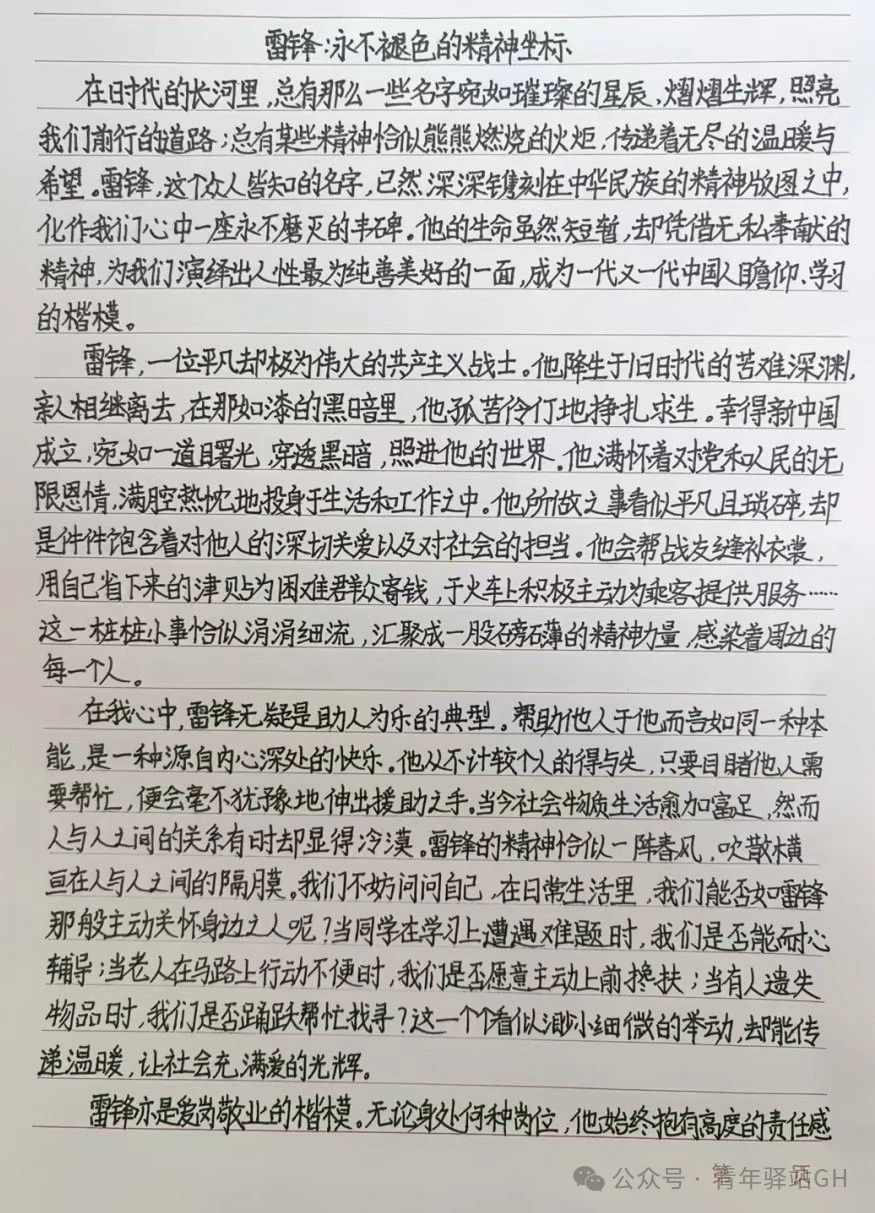 雷锋:永不褪色的精神坐标
在时代的长河里,总有那么一些名字宛如璀璨的星辰,熠熠生辉,照亮
我们前行的道路;总有某些精神恰似熊熊燃烧的火炬,传递着无尽的温暖与
希望。雷锋,这个众人皆知的名字,已然深深镌刻在中华民族的精神版图之中,
化作我们心中一座永不磨灭的丰碑。他的生命虽然短暂,却凭借无私奉献的
精神,为我们演绎出人性最为纯善美好的一面,成为一代又一代中国人瞻仰、学习
的楷模。
雷锋,一位平凡却极为伟大的共产主义战士。他降生于旧时代的苦难深渊,
亲人相继离去,在那如漆的黑暗里,他孤苦伶仃地挣扎求生。幸得新中国
成立,宛如一道曙光,穿透黑暗,照进他的世界。他满怀着对党和人民的无
限恩情,满腔热忱地投身于生活和工作之中。他所做之事看似平凡且琐碎,却
是件件饱含着对他人的深切关爱以及对社会的担当。他会帮战友缝补衣裳,
用自己省下来的津贴为困难群众寄钱,于火车上积极主动为乘客提供服务……
这一桩桩小事恰似涓涓细流,汇聚成一股磅礴的精神力量,感染着周边的
每一个人。
在我心中,雷锋无疑是助人为乐的典型。帮助他人于他而言如同一种本
能,是一种源自内心深处的快乐。他从不计较个人的得与失,只要目睹他人需
要帮忙,便会毫不犹豫地伸出援助之手。当今社会物质生活愈加富足,然而
人与人之间的关系有时却显得冷漠。雷锋的精神恰似一阵春风,吹散横
亘在人与人之间的隔膜。我们不妨问问自己,在日常生活里,我们能否如雷锋
那般主动关怀身边之人呢?当同学在学习上遭遇难题时,我们是否能耐心
辅导;当老人在马路上行动不便时,我们是否愿意主动上前搀扶;当有人遗失
物品时,我们是否踊跃帮忙找寻?这一个个看似渺小细微的举动,却能传
递温暖,让社会充满爱的光辉。
雷锋亦是爱岗敬业的楷模。无论身处何种岗位,他始终抱有高度的责任感
第 页
公众号·青年驿站GH